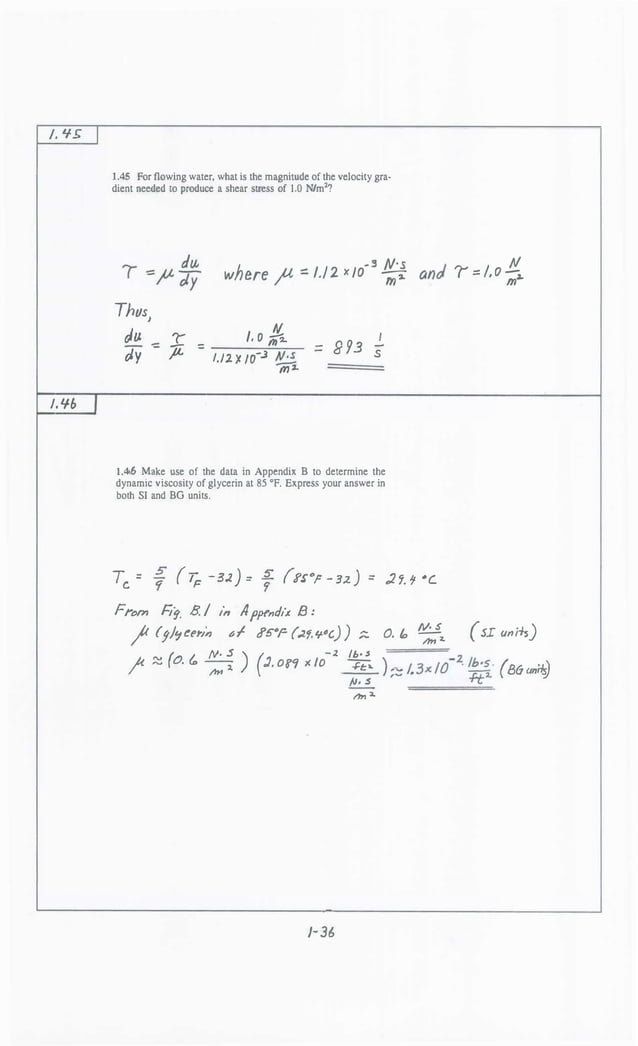 1.45
1.45 For flowing water, what is the magnitude of the velocity gra-
dient needed to produce a shear stress of 1.0 N/m²?
τ = μ du/dy where μ = 1.12 x 10⁻³ N·s/m² and τ = 1.0 N/m²
Thus,
du/dy = τ/μ = 1.0 N/m² / 1.12 x 10⁻³ N·s/m² = 893 1/s
1.46
1.46 Make use of the data in Appendix B to determine the
dynamic viscosity of glycerin at 85 °F. Express your answer in
both SI and BG units.
T_C = 5/9 (T_F - 32) = 5/9 (85°F - 32) = 29.4 °C
From Fig. B.1 in Appendix B:
μ (glycerin at 85°F (29.4°C)) ≈ 0.6 N·s/m² (SI units)
μ ≈ (0.6 N·s/m²) (2.089 x 10⁻² lb·s/ft² / N·s/m²) ≈ 1.3 x 10⁻² lb·s/ft² (BG units)
1-36